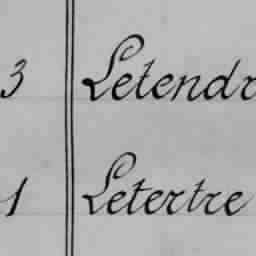 3 Letendr
1 Letertre